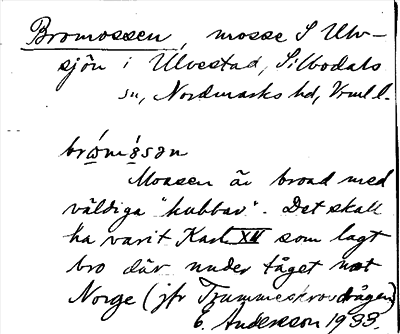 Bromossen, mosse S Ulv-
sjön i Ulvestad, Silbodals
sn, Nordmarks hd, Vrml l.
brωmωsən
Mossen är broad med
väldiga "kubbar". Det skall
ha varit Karl XII som lagt
bro där under tåget mot
Norge (jfr Trummeskrovdrågen)
E. Andersson 1933